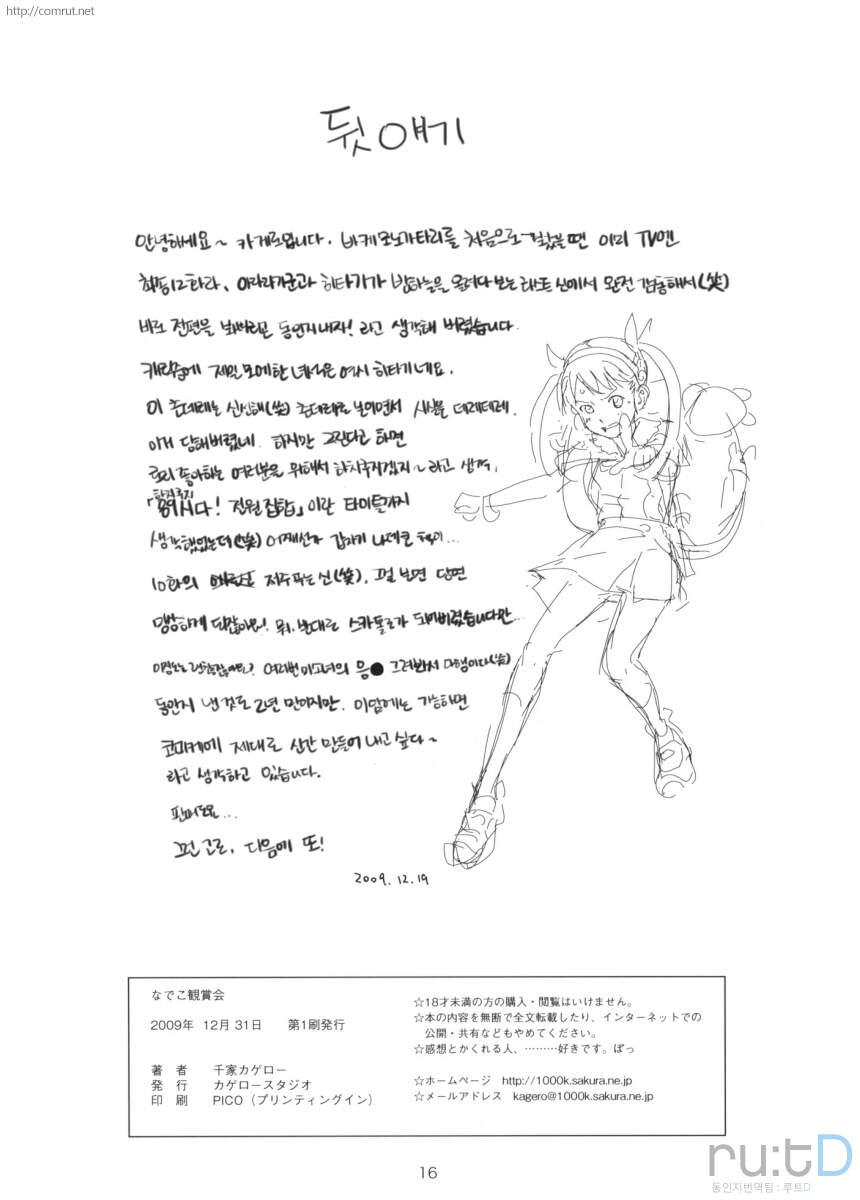 http://comrut.net
뒷얘기
안녕하세요~ 카게로입니다. 바케모노가타리를 처음으로 봤을 땐 이미 TV엔
최종12화라, 아라라기군과 히타기가 밤하늘을 올려다 보는 라스트 신에서 완전 감동해서(笑)
바로 전편을 봐버리곤 동인지내자! 라고 생각해 버렸습니다.
캐릭중에 제일 모에한 녀석은 역시 히타기네요.
이 츤데레는 신선해(笑) 츤데레로 보이면서 사실은 데레데레.
이거 당해버렸네. 하지만 그린다고 하면
로리 좋아하는 여러분을 위해서 하치쿠지겠지~ 라고 생각,
하치쿠지
「8시다! 전원 집합」이란 타이틀까지
생각했었는데(笑) 어째선가 갑자기 나데코 책이...
10화의 저주 푸는 신(笑). 그걸 보면 당연
망상하게 되잖아요! 뭐, 반대로 스카토로가 되어버렸습니다만...
여러번 미소녀의 응● 그려봐서 다행이다(笑)
동인지 낸 것도 2년 만이지만. 이 다음에는 가능하면
코미케에 제대로 신간 만들어 내고 싶다~
라고 생각하고 있습니다.
그런 고로, 다음에 또!
2009.12.19
なでこ観賞会
2009年 12月31日 第1刷発行
著 者 千家カゲロー
発 行 カゲロースタジオ
印 刷 PICO（プリンティングイン）
☆18才未満の方の購入・閲覧はいけません。
☆本の内容を無断で全文転載したり、インターネットでの
公開・共有などもやめてください。
☆感想とかくれる人、………好きです。ぽっ
☆ホームページ http://1000k.sakura.ne.jp
☆メールアドレス kagero@1000k.sakura.ne.jp
16
ru:tD
동인지번역팀 : 루트D